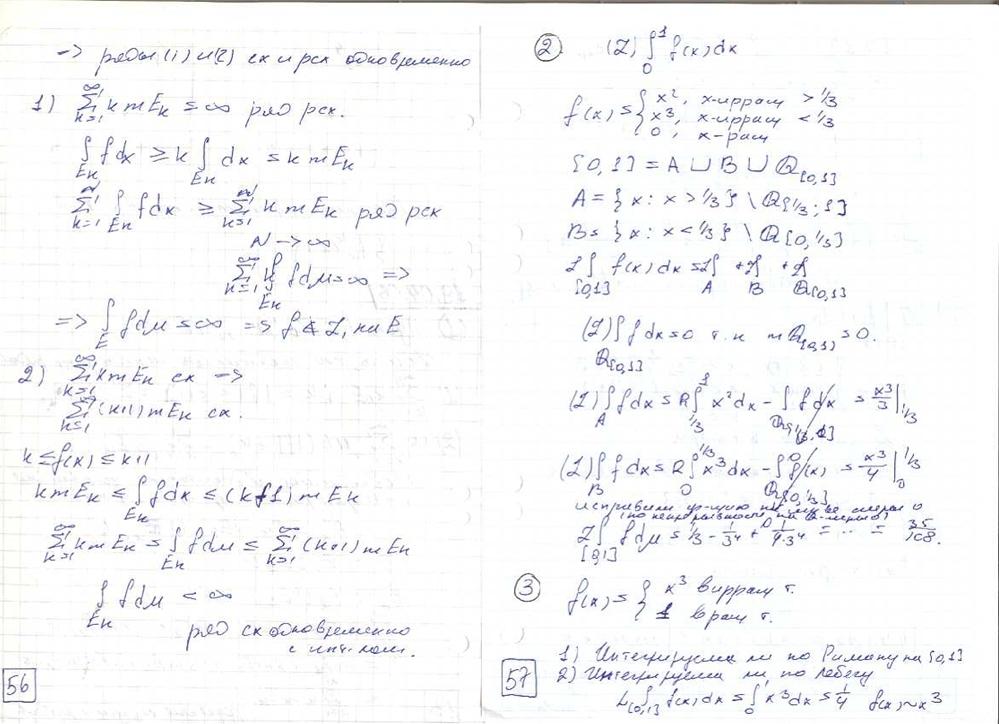 -> ряды (1) и (2) сх и рсх одновременно
1) ∞ Σ k=1 k m Eₖ = ∞ ряд рсх.
∫Eₖ f dx ≥ k ∫Eₖ dx = k m Eₖ
N Σ k=1 ∫Eₖ f dx ≥ N Σ k=1 k m Eₖ ряд рсх
N -> ∞
∞ Σ k=1 ∫Eₖ f dμ = ∞ =>
=> ∫E f dμ = ∞ => f ∉ L₁ на E
2) ∞ Σ k=1 k m Eₖ сх ->
∞ Σ k=1 (k+1) m Eₖ сх.
k ≤ f(x) ≤ k+1
k m Eₖ ≤ ∫Eₖ f dx ≤ (k+1) m Eₖ
∞ Σ k=1 k m Eₖ ≤ ∫Eₖ f dμ ≤ ∞ Σ k=1 (k+1) m Eₖ
∫Eₖ f dμ < ∞
ряд сх одновременно
с инт-лом.
56
② (L) ∫₀¹ f(x) dx
f(x) = { x², x-иррац > 1/3
x³, x-иррац < 1/3
0, x-рац
[0,1] = A ∪ B ∪ Q[0,1]
A = {x: x > 1/3} \ Q[1/3; 1]
B = {x: x < 1/3} \ Q[0, 1/3]
L∫[0,1] f(x) dx = L∫A + L∫B + L∫Q[0,1]
(L) ∫Q[0,1] f dx = 0 т.к m Q[0,1] = 0.
(L) ∫A f dx = R ∫1/3¹ x² dx - ∫Q[1/3, 1] f dx = x³/3 |1/3¹
(L) ∫B f dx = R ∫₀1/3 x³ dx - ∫Q[0, 1/3] f(x) = x⁴/4 |₀1/3
исправили ф-цию на мн-ве меры 0
L∫[0,1] f dμ = 1/3 - 1/3⁴ + 1/4·3⁴ = ... = 35/108.
③ f(x) = { x³ в иррац т.
1 в рац т.
1) Интегрируема ли по Риману на [0,1]
2) Интегрируема ли по Лебегу
L∫[0,1] f(x) dx = ∫₀¹ x³ dx = 1/4 f(x) ~ x³
57